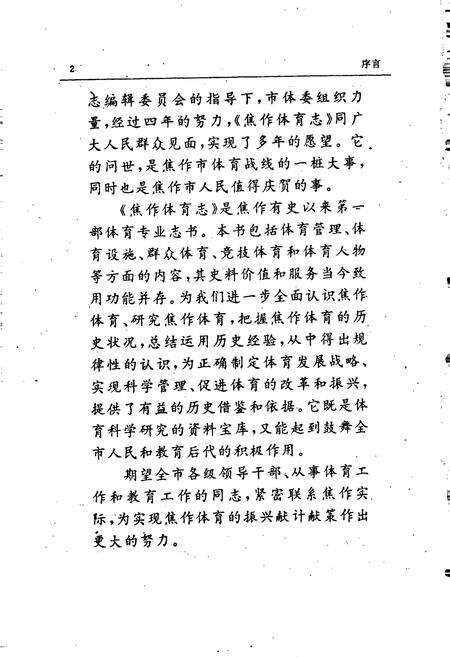 2 序言
志编辑委员会的指导下，市体委组织力
量，经过四年的努力，《焦作体育志》同广
大人民群众见面，实现了多年的愿望。它
的问世，是焦作市体育战线的一桩大事，
同时也是焦作市人民值得庆贺的事。
《焦作体育志》是焦作有史以来第一
部体育专业志书。本书包括体育管理、体
育设施、群众体育、竞技体育和体育人物
等方面的内容，其史料价值和服务当今致
用功能并存。为我们进一步全面认识焦作
体育、研究焦作体育，把握焦作体育的历
史状况，总结运用历史经验，从中得出规
律性的认识，为正确制定体育发展战略、
实现科学管理、促进体育的改革和振兴，
提供了有益的历史借鉴和依据。它既是体
育科学研究的资料宝库，又能起到鼓舞全
市人民和教育后代的积极作用。
期望全市各级领导干部、从事体育工
作和教育工作的同志，紧密联系焦作实
际，为实现焦作体育的振兴献计献策作出
更大的努力。